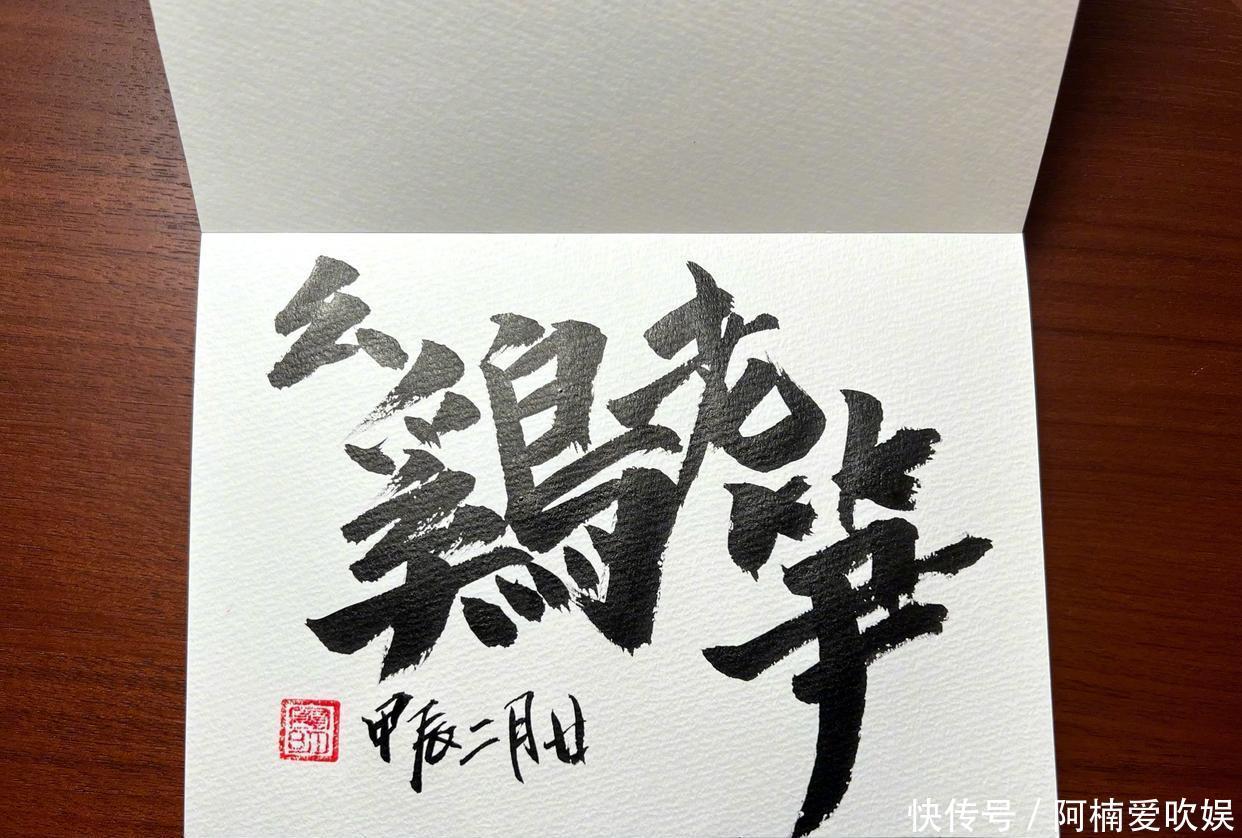 幺鷄老
甲辰二月廿
快传号 / 阿楠爱吹娱